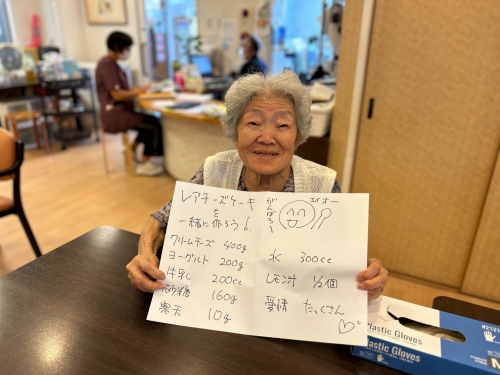 レアチーズケーキ
を
一緒に作ろう!
クリームチーズ 400g
ヨーグルト 200g
牛乳 200cc
砂糖 160g
寒天 10g
がんばろー
エイオー
水 300cc
レモン汁 1/2個
愛情 たっくさん
Plastic Gloves
Plastic Gloves